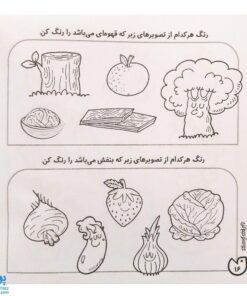 رنگ هرکدام از تصویرهای زیر که قهوه‌ای می‌باشد را رنگ کن
رنگ هرکدام از تصویرهای زیر که بنفش می‌باشد را رنگ کن
۱۶